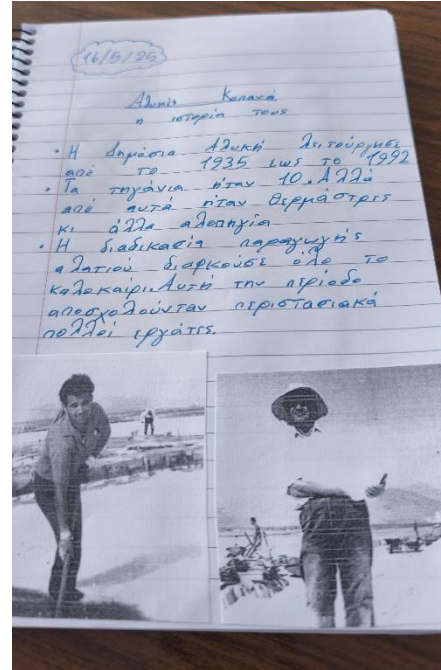 16/5/25
Αλυκές Κοπανά,
η ιστορία τους
• Η δημόσια Αλυκή λειτούργησε
από το 1935 εως το 1992
• Τα τηγάνια ήταν 10. Αλλά
από αυτά ήταν θερμάστρες
κι άλλα αλοπηγία
• Η διαδικασία παραγωγής
αλατιού διαρκούσε όλο το
καλοκαίρι. Αυτή την περίοδο
αποσχολούνταν περιστασιακά
πολλοί εργάτες.